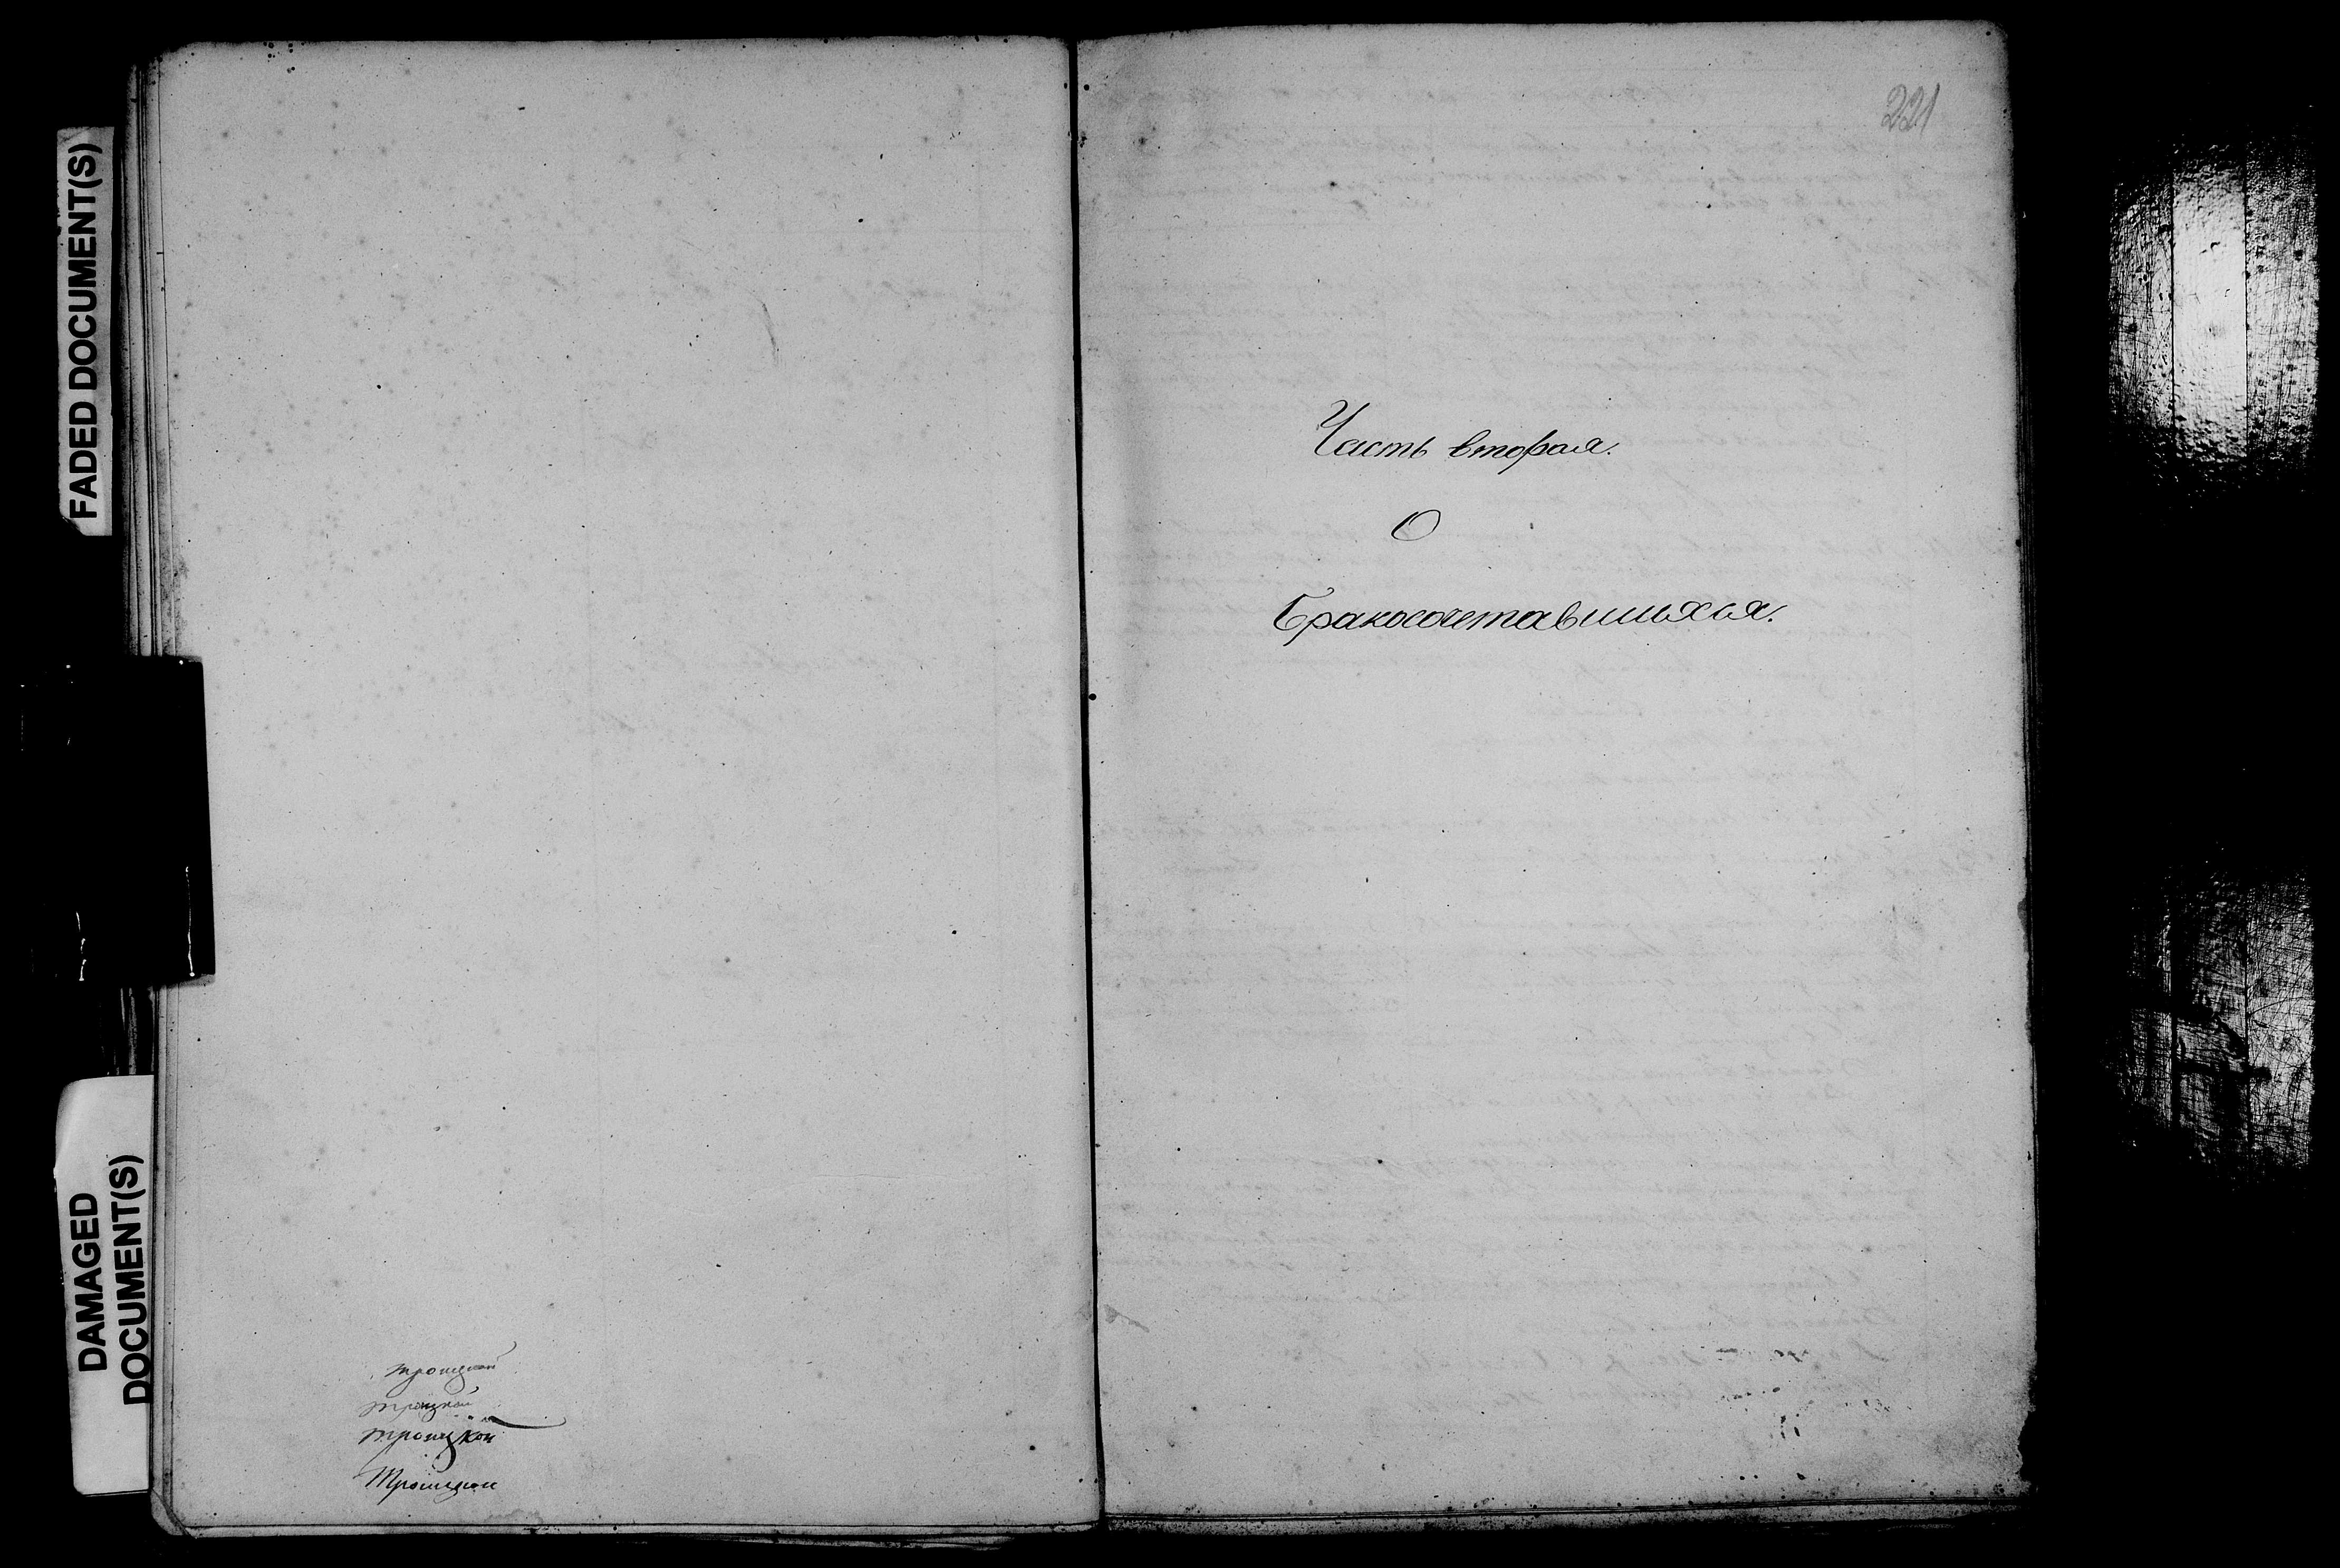 FADED DOCUMENT(S)
DAMAGED
DOCUMENT(S)
троицкой
троицкой
троицкой
Троицкой
221
Часть вторая.
О
Бракосочетавшихся.